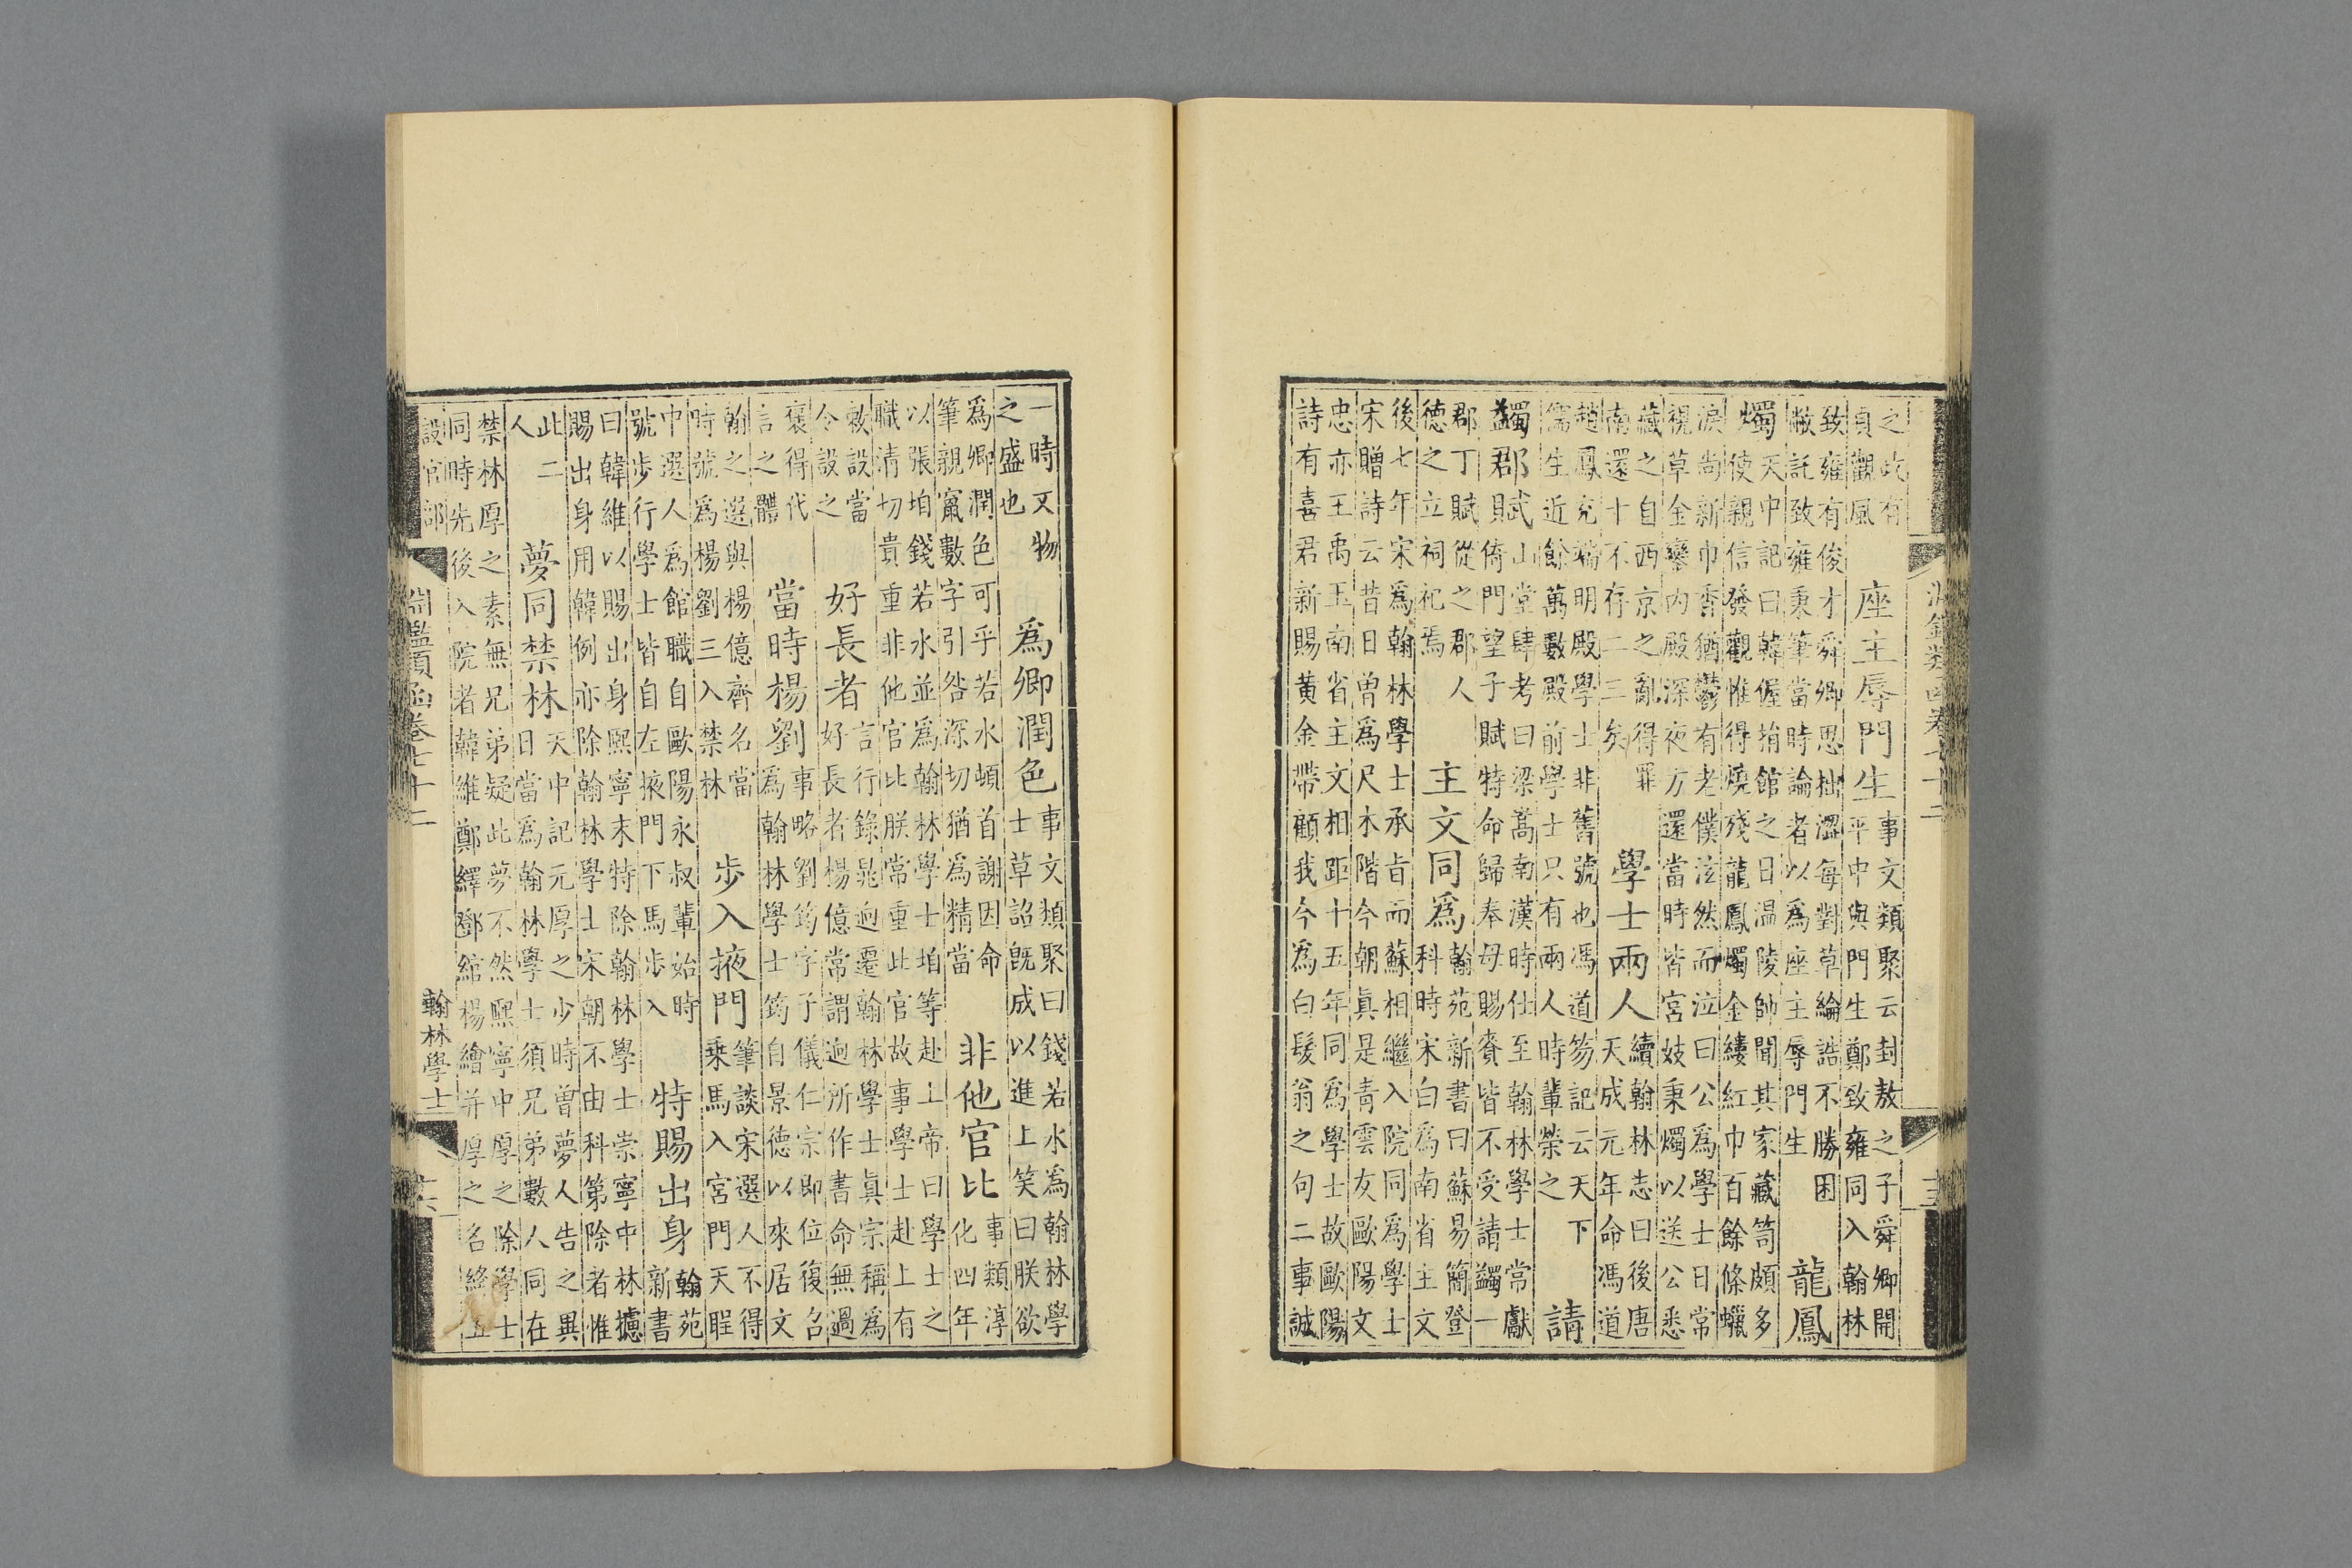 淵鑑類函卷七十二
之此有
貞觀風
座主辱門生
事文類聚云封敖之子舜卿開
平中與門生鄭致雍同入翰林
致雍有俊才舜卿思拙澀每對草綸誥不勝困
敝託致雍秉筆當時論者以為座主辱門生
龍鳳
燭
天中記曰韓偓捐館之日温陵帥聞其家藏笥頗多
使親信發觀惟得燒殘龍鳳燭金縷紅巾百餘條蠟
淚尚新巾香猶鬱有老僕泫然而泣曰公為學士日常
視草金鑾內殿深夜方還當時皆宮妓秉燭以送公悉
藏之自西京之亂得罪
南還十不存二三矣
學士兩人
續翰林志曰後唐
天成元年命馮道
趙鳳充端明殿學士非舊號也馮道笏記云天下
儒生近餘萬數殿前學士只有兩人時輩榮之
請
蠲郡
武山堂肆考曰梁嵩南漢時仕至翰林學士常獻
貝倚門望子賦特命歸奉母賜賚皆不受請蠲一
郡丁賦從之郡人
德之立祠祀焉
主文同為
翰苑新書曰蘇易簡登
科時宋白為南省主文
後七年宋為翰林學士承旨而蘇相繼入院同為學士
宋贈詩云昔日曾為尺木階今朝真是青雲友歐陽文
忠亦王禹玉南省主文相距十五年同為學士故歐陽
詩有喜君新賜黃金帶顧我今為白髮翁之句二事誠
一時文物
之盛也
為卿潤色
事文類聚曰錢若水為翰林學
士草詔既成以進上笑曰朕欲
為卿潤色可乎若水頓首謝因命
筆親竄數字引咎深切猶為精當
非他官比
事類淳
化四年
以張洎錢若水並為翰林學士洎等赴上帝曰學士之
職清切貴重非他官此朕常重此官故事學士赴上有
敕設當
令設之
好長者
言行錄晁迥遷翰林學士真宗稱為
好長者楊億常謂迥所作書命無過
褒得代
言之體
當時楊劉
事略劉筠字子儀仁宗即位復召
為翰林學士筠自景德以來居文
翰之選與楊億齊名當
時號為楊劉三入禁林
步入掖門
筆談宋選人不得
乘馬入宮門天聖
中選人為館職自歐陽永叔輩始時
號步行學士皆自左掖門下馬步入
特賜出身
翰苑
新書
曰韓維以賜出身熙寧末特除翰林學士崇寧中林攄
賜出身用韓例亦除翰林學士宋朝不由科第除者惟
此二
人
夢同禁林
天中記元厚之少時曾夢人告之異
日當為翰林學士須兄弟數人同在
禁林厚之素無兄弟疑此夢不然熙寧中厚之除學士
同時先後入院者韓維鄭繹鄧綰楊繪并厚之名絳五
設官部
淵鑑類函卷七十二
翰林學士